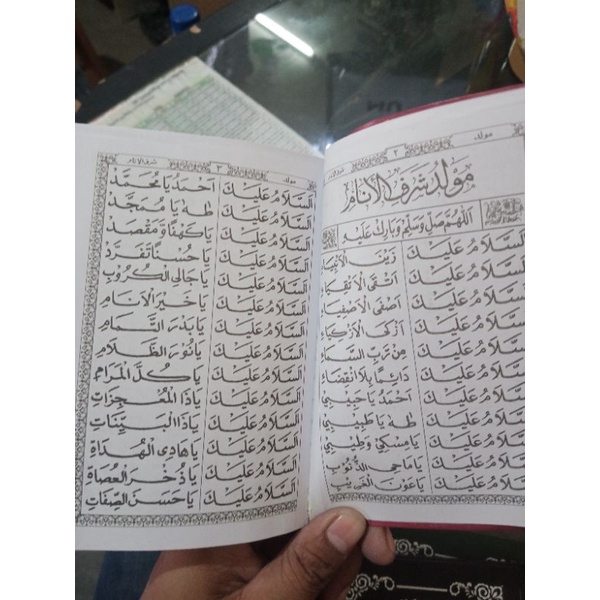 مولد ٢
مَوْلِدْ شَرَفُ الْأَنَامِ
اَللّٰهُمَّ صَلِّ وَسَلِّمْ وَبَارِكْ عَلَيْهِ
اَلسَّلَامُ عَلَيْكَ زَيْنَ الْاَنْبِيَاءِ
اَلسَّلَامُ عَلَيْكَ اَتْقَى الْاَتْقِيَاءِ
اَلسَّلَامُ عَلَيْكَ اَصْفَى الْاَصْفِيَاءِ
اَلسَّلَامُ عَلَيْكَ اَزْكَى الْاَزْكِيَاءِ
اَلسَّلَامُ عَلَيْكَ مِنْ رَبِّ السَّمَاءِ
اَلسَّلَامُ عَلَيْكَ دَائِمًا بِلَا انْقِضَاءِ
اَلسَّلَامُ عَلَيْكَ اَحْمَدُ يَا حَبِيْبِيْ
اَلسَّلَامُ عَلَيْكَ طٰهٰ يَا طَبِيْبِيْ
اَلسَّلَامُ عَلَيْكَ يَا مِسْكِيْ وَطِيْبِيْ
اَلسَّلَامُ عَلَيْكَ يَا مَاحِي الذُّنُوْبِ
اَلسَّلَامُ عَلَيْكَ يَا عَوْنَ الْغَرِيْبِ
مولد ٣ شرف الانام
اَلسَّلَامُ عَلَيْكَ اَحْمَدُ يَا مُحَمَّدْ
اَلسَّلَامُ عَلَيْكَ طٰهٰ يَا مُمَجَّدْ
اَلسَّلَامُ عَلَيْكَ يَا كَهْفًا وَمَقْصَدْ
اَلسَّلَامُ عَلَيْكَ يَا حُسْنًا تَفَرَّدْ
اَلسَّلَامُ عَلَيْكَ يَا جَالِي الْكُرُوْبِ
اَلسَّلَامُ عَلَيْكَ يَا خَيْرَ الْاَنَامِ
اَلسَّلَامُ عَلَيْكَ يَا بَدْرَ التَّمَامِ
اَلسَّلَامُ عَلَيْكَ يَا نُوْرَ الظَّلَامِ
اَلسَّلَامُ عَلَيْكَ يَا كُلَّ الْمَرَامِ
اَلسَّلَامُ عَلَيْكَ يَا ذَا الْمُعْجِزَاتِ
اَلسَّلَامُ عَلَيْكَ يَا ذَا الْبَيِّنَاتِ
اَلسَّلَامُ عَلَيْكَ يَا هَادِي الْهُدَاةِ
اَلسَّلَامُ عَلَيْكَ يَا ذُخْرَ الْعُصَاةِ
اَلسَّلَامُ عَلَيْكَ يَا حَسَنَ الصِّفَاتِ